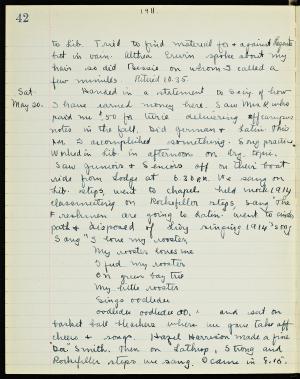 42
1911.
to Lib. Tried to find material for & against
but in vain. Althea Erwin spoke about my
hair so did Bessie on whom I called a
few minutes. Retired 10.35.
Sat.
May 20.
Handed in a statement to Sec'y of how
I have earned money here. Saw Mrs. R. who
paid me $.50 for twice delivering
notes in the fall. Did German & Latin. This
A.M. I accomplished something. Song practice
Worked in Lib in afternoon on Eng. topic.
Saw Juniors & Seniors off on their boat
ride from Lodge at 6.30 P.M. We sang on
Lib. steps, went to chapel held more 1914
classmeeting on Rockefeller steps, sang "The
Freshmen are going to Latin. Went to cinder
path & disposed of diry singing 1914 "Song
Sang "I love my rooster
My rooster loves me
I fed my rooster
On green bay tree
My little rooster
Sings oodledee
oodledee oodledee OO. " and sat on
basket ball bleachers where we gave take off
cheers & songs. Hazel Harrison made a fine
"Da" Smith. Then on Lathrop, Strong and
Rockefeller steps we sang. I came in 8.15.